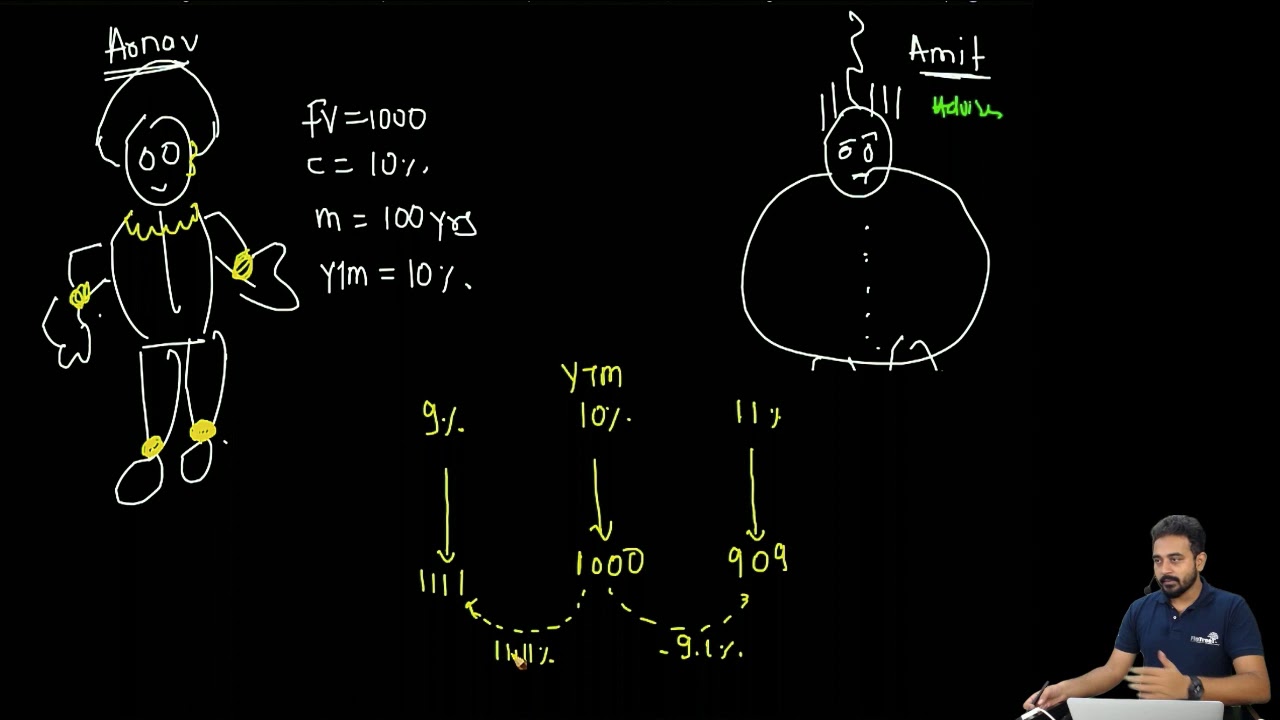 Aonav
FV = 1000
C = 10%.
m = 100 yrs
YTM = 10%.
Amit
Advisor
YTM
9%. 10%. 11%
1111 1000 909
11.11%. -9.1%.